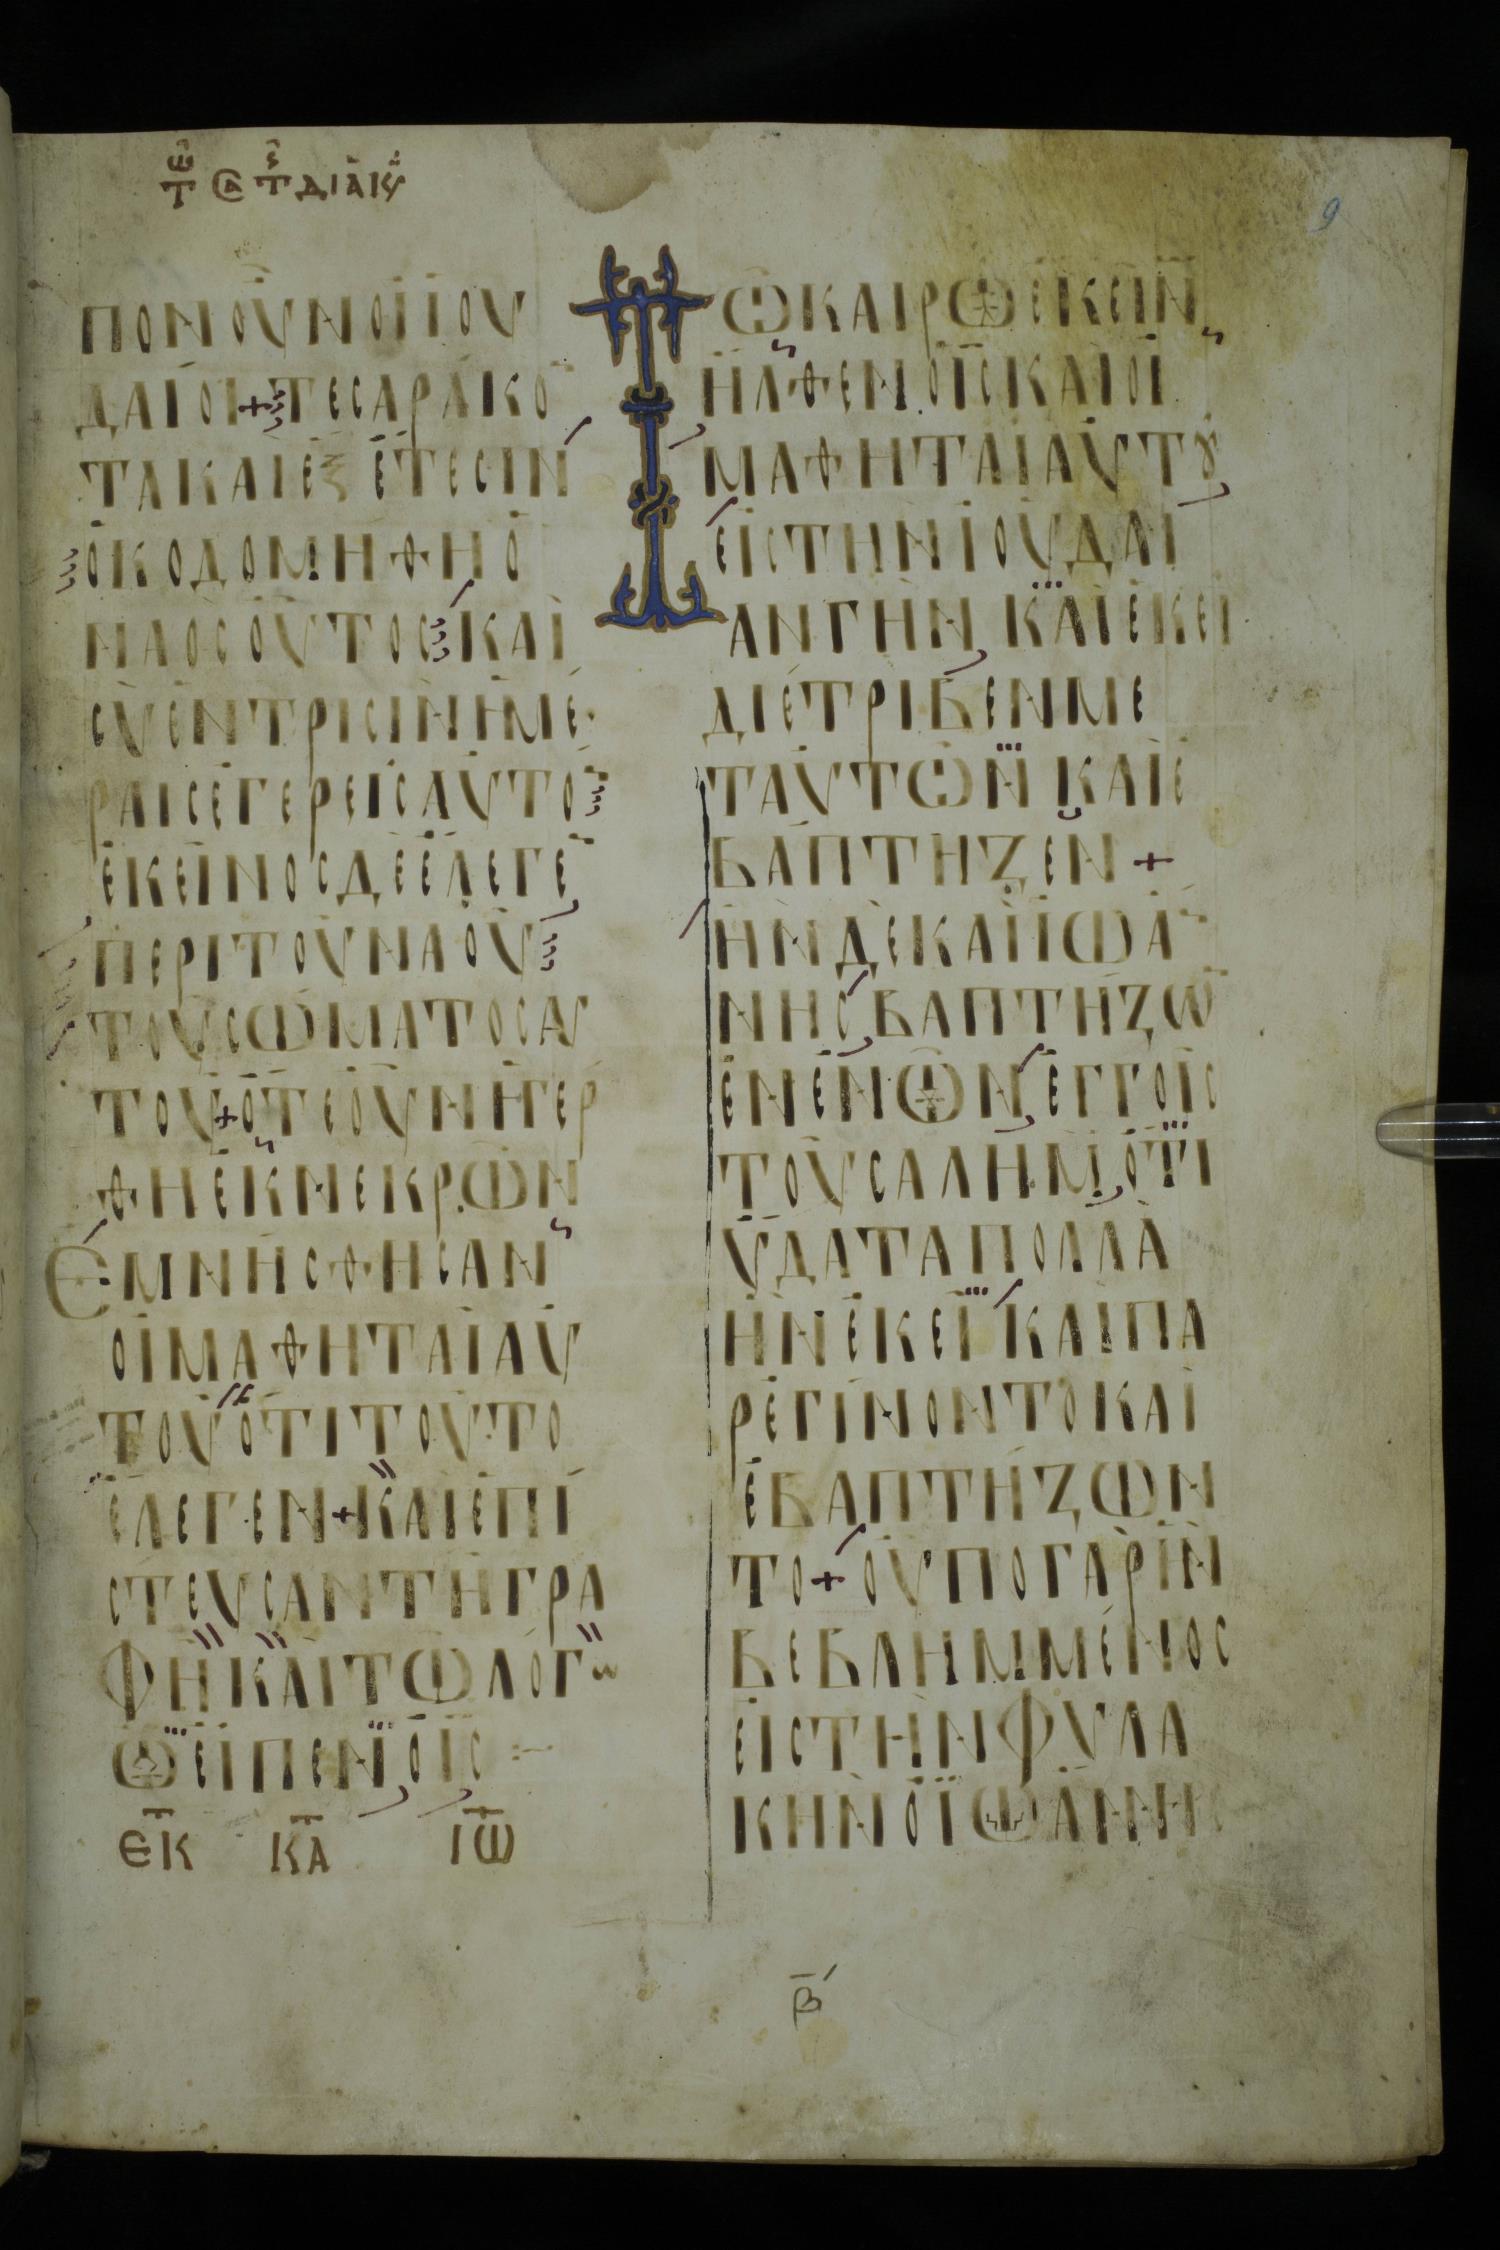 ΤΩ ϹΑ Τ ΔΙΑΚΙ
9
ΠΟΝΟΥΝΟΙΙΟΥ
ΔΑΙΟΙ+ΤΕϹΑΡΑΚΟ
ΤΑΚΑΙΕΞΕΤΕϹΙΝ
ΟΚΟΔΟΜΗΘΗΟ
ΝΑΟϹΟΥΤΟϹΚΑΙ
ϹΥΕΝΤΡΙϹΙΝΗΜΕ
ΡΑΙϹΕΓΕΡΕΙϹΑΥΤΟ
ΕΚΕΙΝΟϹΔΕΕΛΕΓΕ
ΠΕΡΙΤΟΥΝΑΟΥ
ΤΟΥϹΩΜΑΤΟϹΑΥ
ΤΟΥ+ΟΤΕΟΥΝΗΓΕΡ
ΘΗΕΚΝΕΚΡΩΝ
ΕΜΝΗϹΘΗϹΑΝ
ΟΙΜΑΘΗΤΑΙΑΥ
ΤΟΥΟΤΙΤΟΥΤΟ
ΕΛΕΓΕΝ+ΚΑΙΕΠΙ
ϹΤΕΥϹΑΝΤΗΓΡΑ
ΦΗΚΑΙΤΩΛΟΓ
ΩΕΙΠΕΝΟΙϹ
ΕΚ ΚΑ ΙΩ
ΤΩΚΑΙΡΩΕΚΕΙΝ
ΗΛΘΕΝΟΙϹΚΑΙΟΙ
ΜΑΘΗΤΑΙΑΥΤȢ
ΕΙϹΤΗΝΙΟΥΔΑΙ
ΑΝΓΗΝΚΑΙΕΚΕΙ
ΔΙΕΤΡΙΒΕΝΜΕ
ΤΑΥΤΩΝΚΑΙΕ
ΒΑΠΤΗΖΕΝ+
ΗΝΔΕΚΑΙΙΩΑ
ΝΗϹΒΑΠΤΗΖΩ
ΕΝΕΝΩΝΕΓΓΟΙϹ
ΤΟΥϹΑΛΗΜΟΤΙ
ΥΔΑΤΑΠΟΛΛΑ
ΗΝΕΚΕΙΚΑΙΠΑ
ΡΕΓΙΝΟΝΤΟΚΑΙ
ΕΒΑΠΤΗΖΩΝ
ΤΟ+ΟΥΠΟΓΑΡΙΝ
ΒΕΒΛΗΜΜΕΝΟϹ
ΕΙϹΤΗΝΦΥΛΑ
ΚΗΝΟΙΩΑΝΝΗϹ
β